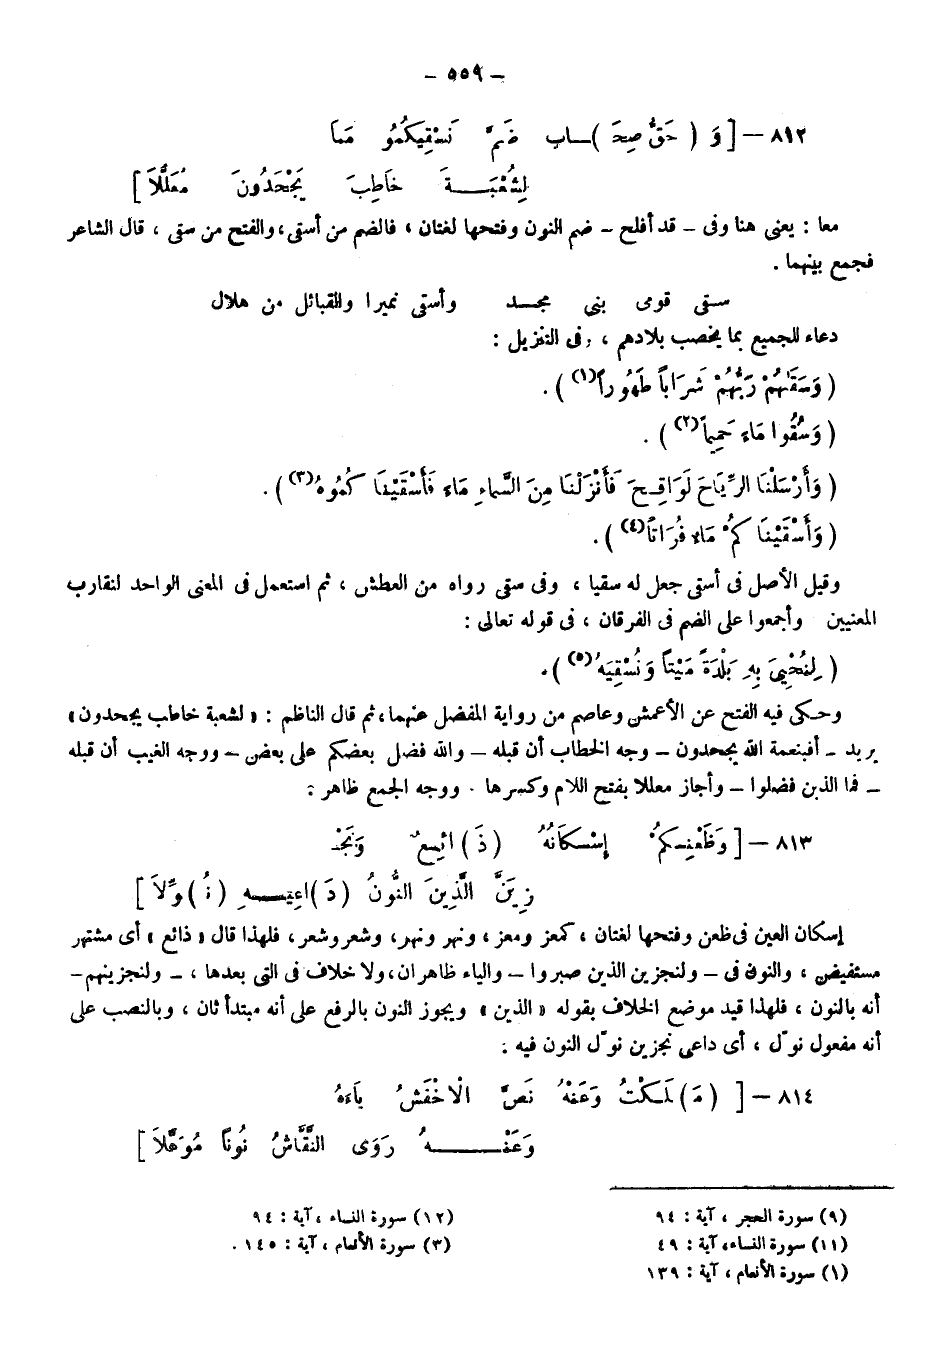 – ٥٥٩ –
٨١٢ – [ وَ ( حَقُّ صِحَـ ) ـاب ضَمَّ نَسْقِيكُمُو مَعاَ
لِشُعْبَـةَ خَاطِبَ يَجْحَدُونَ مُعَلَّلَا ]
معا : يعنى هنا وفى – قد أفلح – ضم النون وفتحها لغتان ، فالضم من أسقى، والفتح من سقى ، قال الشاعر
فجمع بينهما .
سقى قومى بنى مجـد وأسقى نميرا والقبائل من هلال
دعاء للجميع بما يخصب بلادهم ، وفى التنزيل :
( وَسَقَاهُمْ رَبُّهُمْ شَرَاباً طَهُوراً(١) ) .
( وَسُقُوا مَاءَ حَمِيماً(٢) ) .
( وَأَرْسَلْنَا الرِّيَاحَ لَوَاقِـحَ فَأَنْزَلْنَا مِنَ السَّماءِ مَاءَ فَأَسْقَيْنَا كُمُوهُ(٣) ) .
( وَأَسْقَيْنَا كُمْ مَاءَ فُرَاتاً(٤) ) .
وقيل الأصل فى أسقى جعل له سقيا ، وفى سقى رواه من العطش ، ثم استعمل فى المعنى الواحد لتقارب
المعنيين وأجمعوا على الضم فى الفرقان ، فى قوله تعالى :
( لِنُحْيِىَ بِهِ بَلْدَةً مَيْتاً وَنُسْقِيَهُ(٥) ) .
وحكى فيه الفتح عن الأعمش وعاصم من رواية المفضل عنهما، ثم قال الناظم : « لشعبة خاطب يجحدون »
يريد – أفبنعمة الله يجحدون – وجه الخطاب أن قبله – والله فضل بعضكم على بعض – ووجه الغيب أن قبله
– فما الذين فضلوا – وأجاز معللا بفتح اللام وكسرها . ووجه الجمع ظاهر :
٨١٣ – [ وَظَعْنِـكُمْ إِسْـكَانُهُ ( ذَ ) ائِـعٌ وَنَجْـ
زِيَنَّ الَّذِينَ النُّونُ ( دَ )اعِيـهِ ( نُـ ) وِّلَا ]
إسكان العين فى ظعن وفتحها لغتان ، كمعز ومعز ، ونهر ونهر، وشعر وشعر، فلهذا قال « ذائع » أى مشتهر
مستفيض ، والنون فى – ولنجزين الذين صبروا – والياء ظاهران، ولا خلاف فى التى بعدها ، – ولنجزينهم–
أنه بالنون ، فلهذا قيد موضع الخلاف بقوله « الذين » ويجوز النون بالرفع على أنه مبتدأ ثان ، وبالنصب على
أنه مفعول نوّل ، أى داعى نجزين نوّل النون فيه :
٨١٤ – [ ( مَـ ) لَـكْتُ وَعَنْهُ نَصَّ الْاخْفَشُ يَاءَهُ
وَعَنْـهُ رَوَى النَّقَّاشُ نُوناً مُوَهَّلَا ]
(٩) سورة الحجر ، آية : ٩٤
(١٢) سورة النساء ، آية : ٩٤
(١١) سورة النساء، آية : ٤٩
(٣) سورة الأنعام ، آية : ١٤٥ .
(١) سورة الأنعام ، آية : ١٣٩